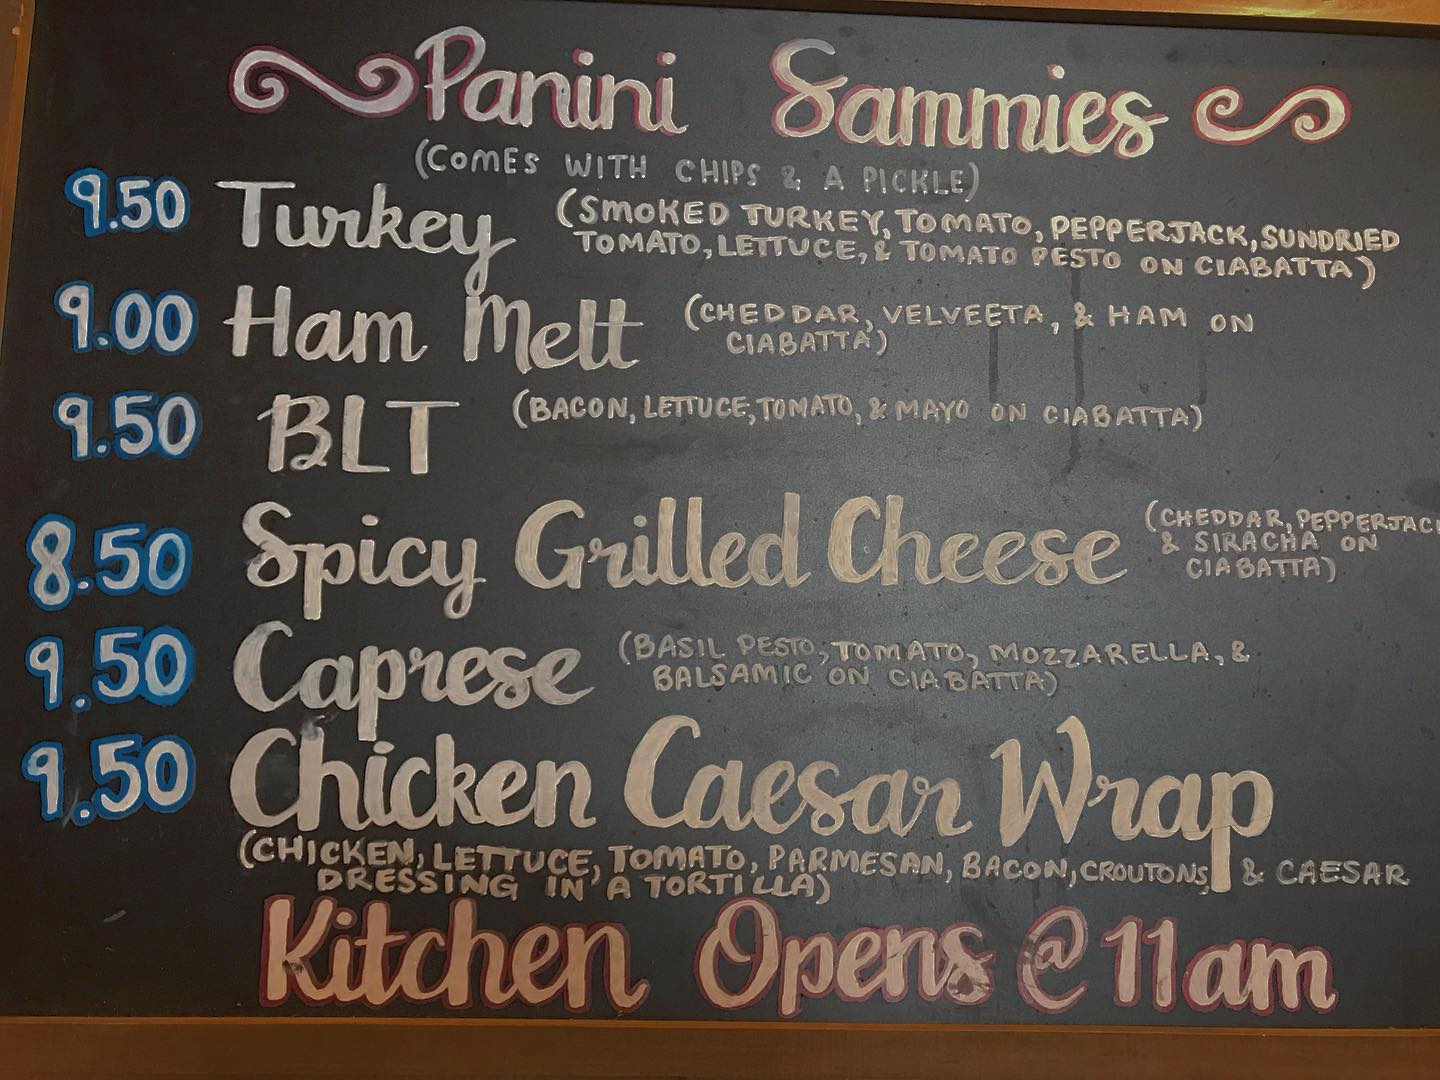 Panini Sammies
(COMES WITH CHIPS & A PICKLE)
9.50 Turkey (SMOKED TURKEY, TOMATO, PEPPERJACK, SUNDRIED
TOMATO, LETTUCE, & TOMATO PESTO ON CIABATTA)
9.00 Ham Melt (CHEDDAR, VELVEETA, & HAM ON
CIABATTA)
9.50 BLT (BACON, LETTUCE, TOMATO, & MAYO ON CIABATTA)
8.50 Spicy Grilled Cheese (CHEDDAR, PEPPERJACK
& SIRACHA ON
CIABATTA)
9.50 Caprese (BASIL PESTO, TOMATO, MOZZARELLA, &
BALSAMIC ON CIABATTA)
9.50 Chicken Caesar Wrap
(CHICKEN, LETTUCE, TOMATO, PARMESAN, BACON, CROUTONS, & CAESAR
DRESSING IN A TORTILLA)
Kitchen Opens @ 11am